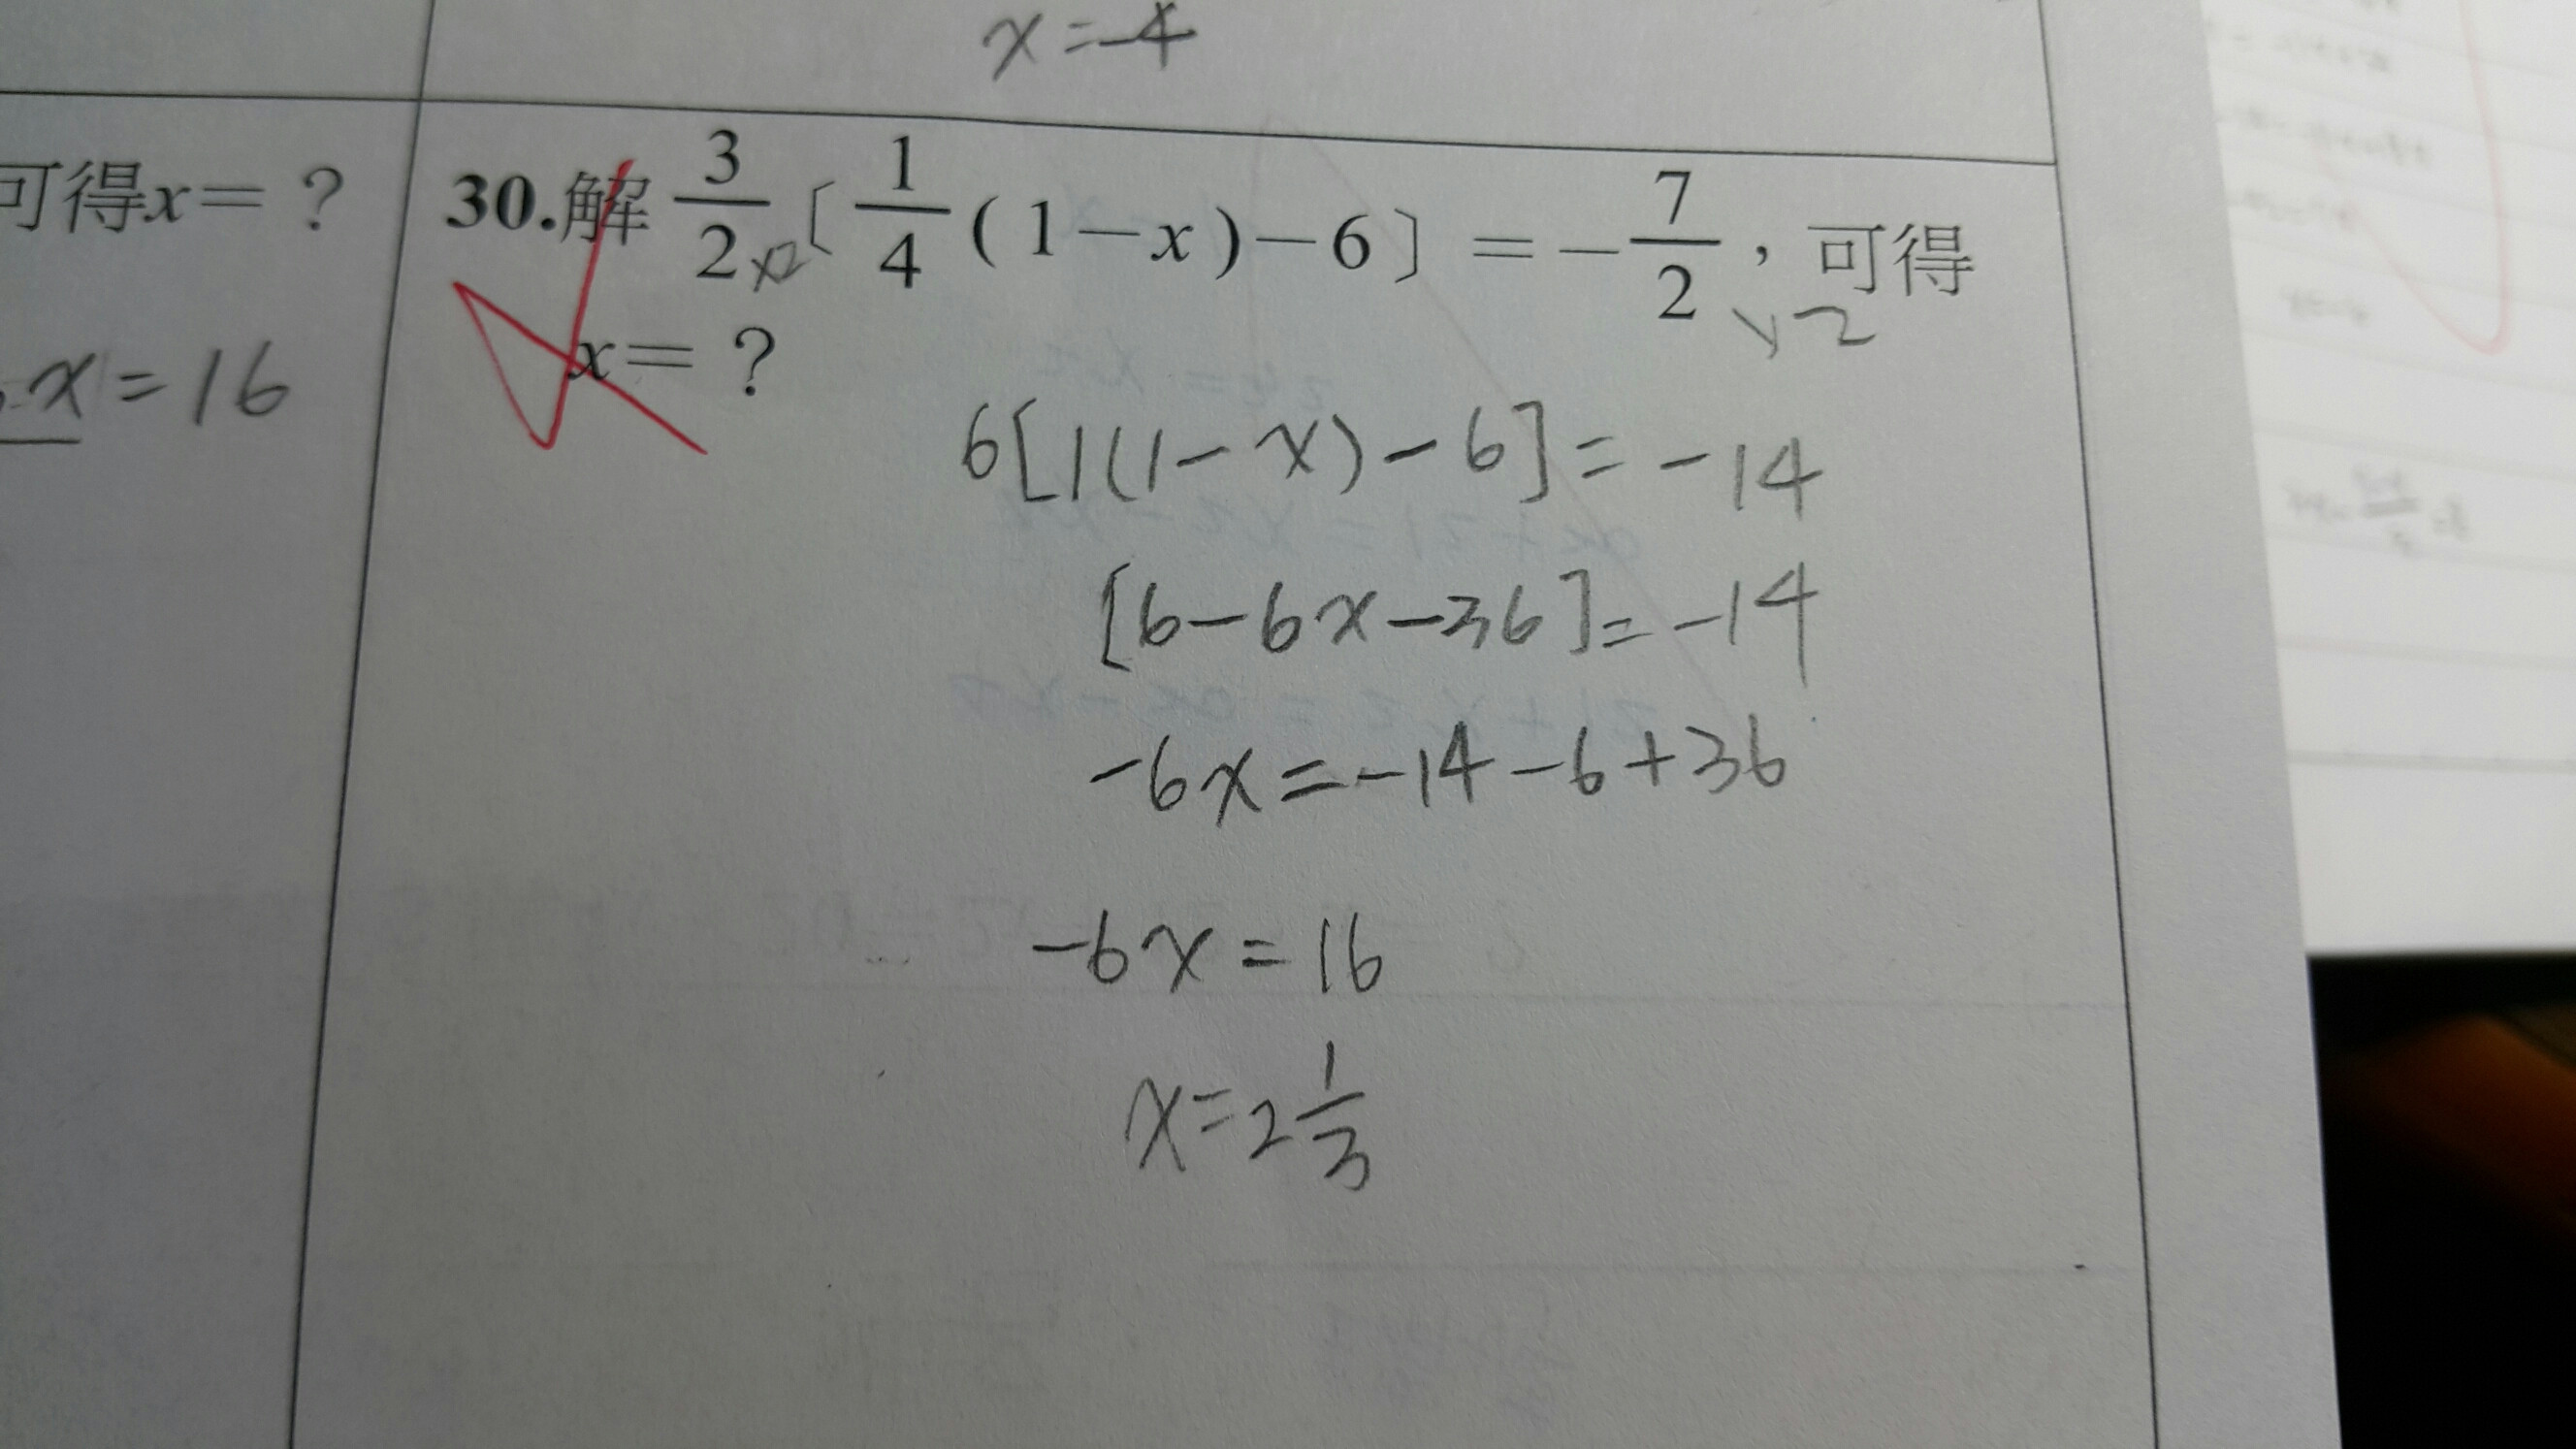 x=-4
可得x=？
x=16
30.解 3/2 ×2〔1/4(1-x)-6〕=-7/2，可得
×2
x=？
6[1(1-x)-6]=-14
[6-6x-36]=-14
-6x=-14-6+36
-6x=16
x=2 1/3